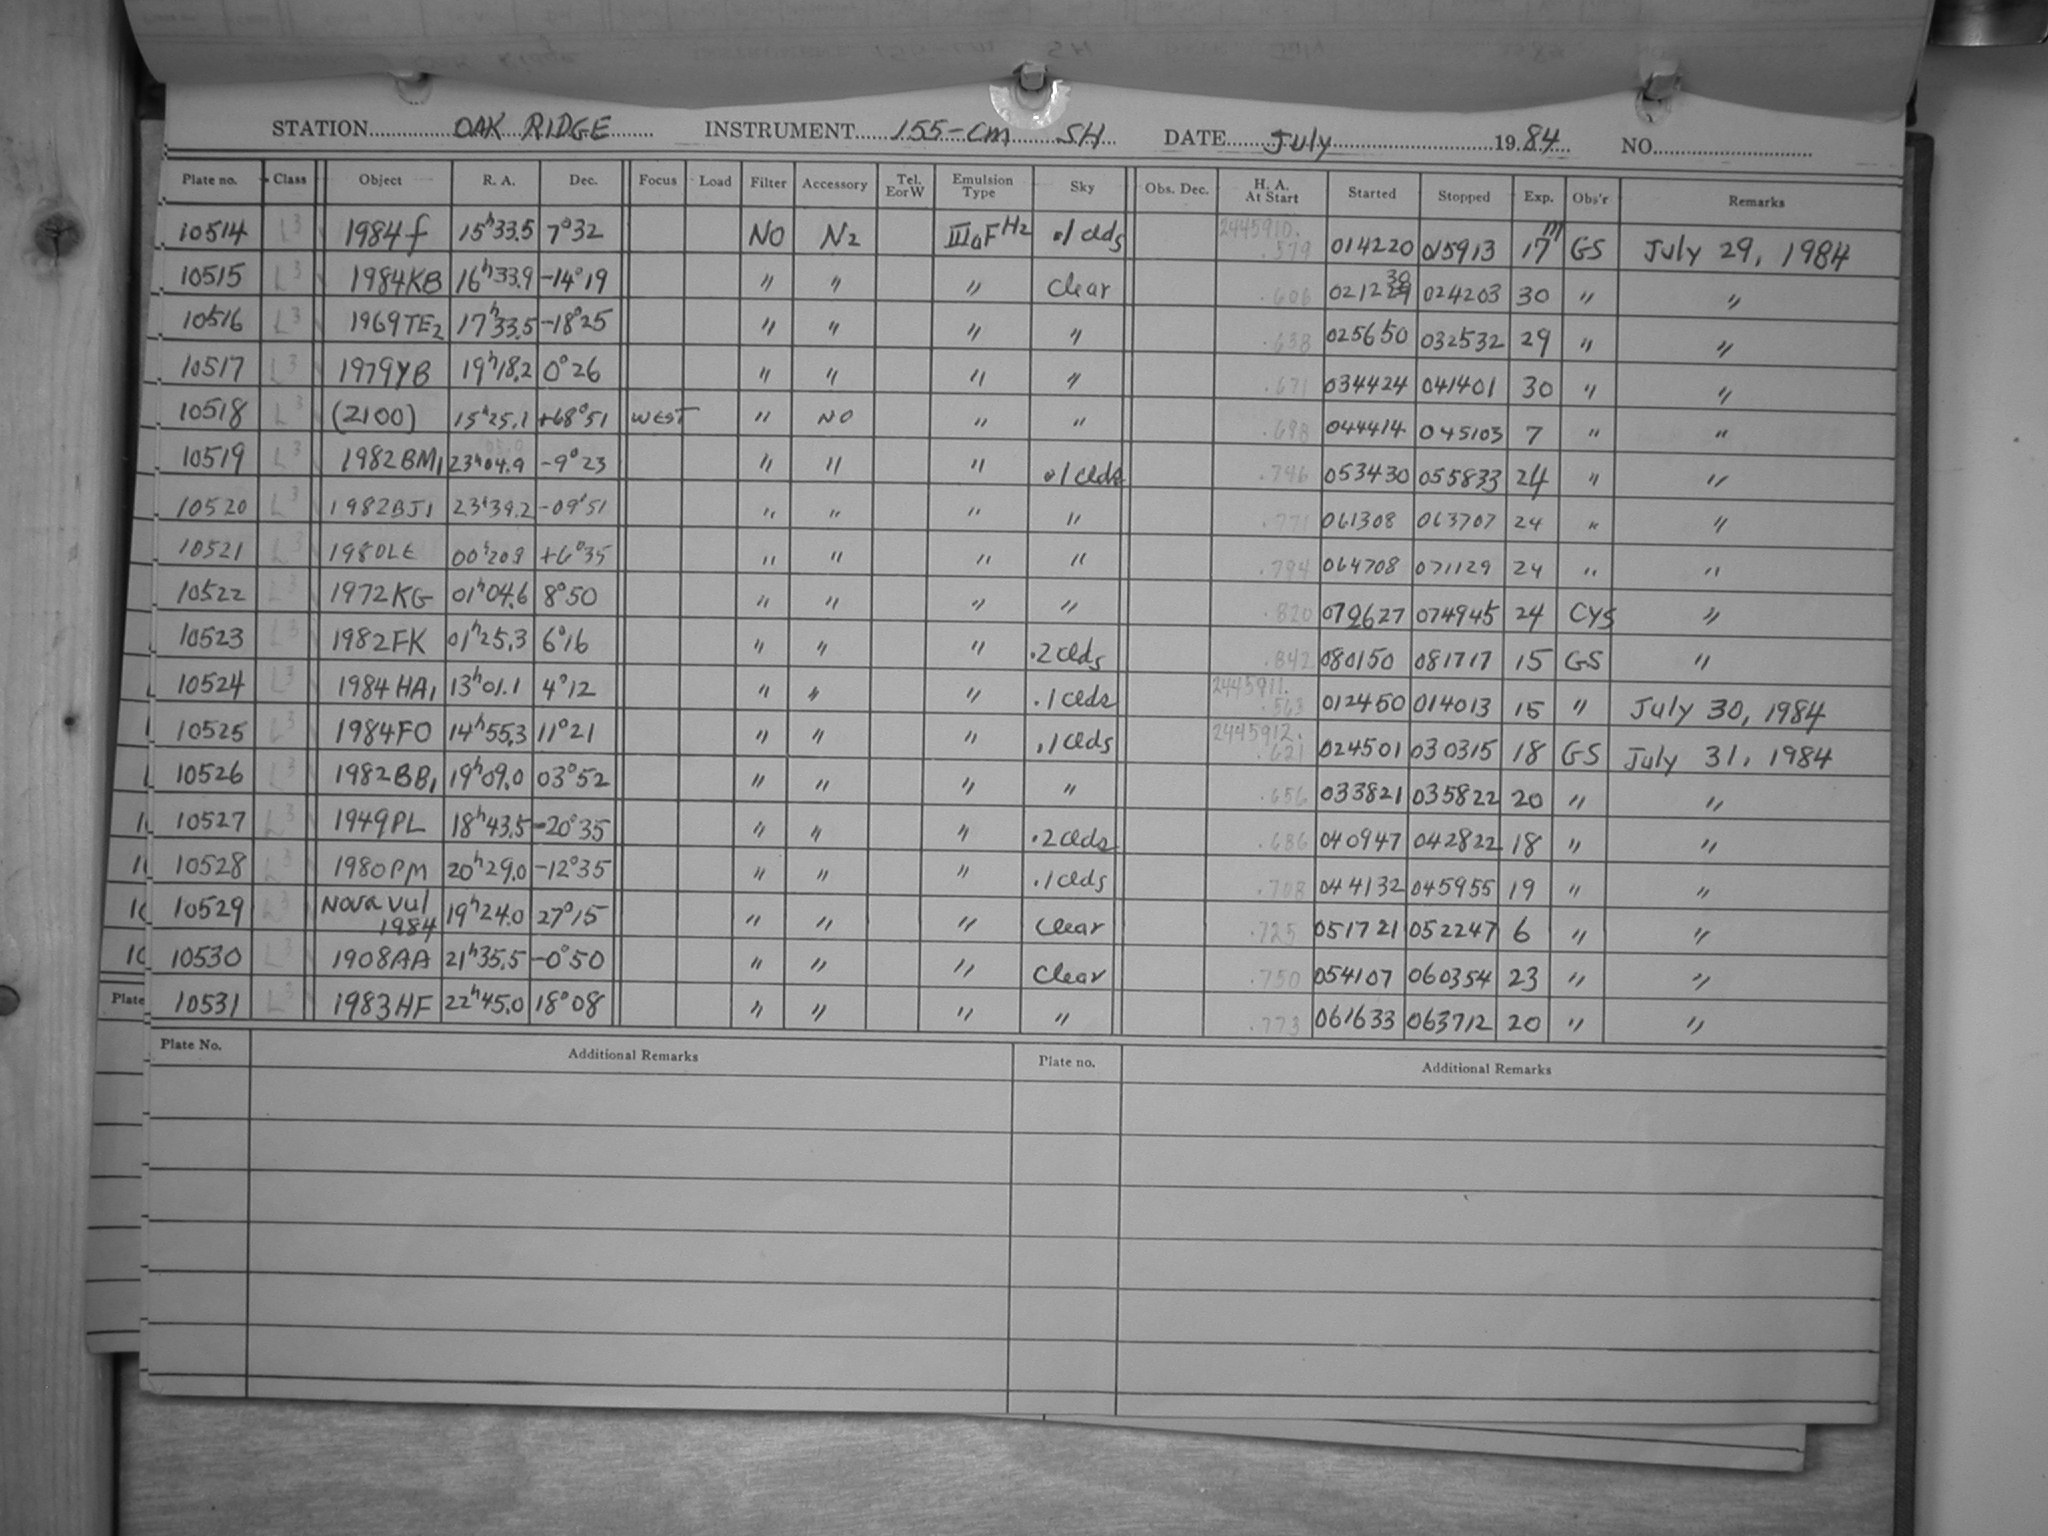 STATION OAK RIDGE INSTRUMENT 155-cm SH DATE July 1984 NO.
Plate no. Class Object R. A. Dec. Focus Load Filter Accessory Tel. E or W Emulsion Type Sky Obs. Dec. H. A. At Start Started Stopped Exp. Obs'r Remarks
10514 L3 1984f 15h33.5 7°32 NO N2 IIIaF H2 .1 clds 2445910. .579 014220 015913 17m GS July 29, 1984
10515 L3 1984KB 16h33.9 -14°19 " " " clear .606 021230 024203 30 " "
10516 L3 1969TE2 17h33.5 -18°25 " " " " .638 025650 032532 29 " "
10517 L3 1979YB 19h18.2 0°26 " " " " .671 034424 041401 30 " "
10518 L3 (2100) 15h25.1 +68°51 WEST " NO " " .698 044414 045103 7 " "
10519 L3 1982BM1 23h04.9 -9°23 " " " .1 clds .746 053430 055833 24 " "
10520 L3 1982BJ1 23h39.2 -09°51 " " " " .771 061308 063707 24 " "
10521 L3 1980LE 00h20.8 +6°35 " " " " .794 064708 071129 24 " "
10522 L3 1972KG 01h04.6 8°50 " " " " .820 072627 074945 24 CYS "
10523 L3 1982FK 01h25.3 6°16 " " " .2 clds .842 080150 081717 15 GS "
10524 L3 1984HA1 13h01.1 4°12 " " " .1 clds 2445911. .563 012450 014013 15 " July 30, 1984
10525 L3 1984FO 14h55.3 11°21 " " " .1 clds 2445912. .621 024501 030315 18 GS July 31, 1984
10526 L3 1982BB1 19h09.0 03°52 " " " " .656 033821 035822 20 " "
10527 L3 1949PL 18h43.5 -20°35 " " " .2 clds .686 040947 042822 18 " "
10528 L3 1980PM 20h29.0 -12°35 " " " .1 clds .708 044132 045955 19 " "
10529 L3 Nova Vul 1984 19h24.0 27°15 " " " clear .725 051721 052247 6 " "
10530 L3 1908AA 21h35.5 -0°50 " " " clear .750 054107 060354 23 " "
10531 L3 1983HF 22h45.0 18°08 " " " " .773 061633 063712 20 " "
Plate No. Additional Remarks Plate no. Additional Remarks
Plate